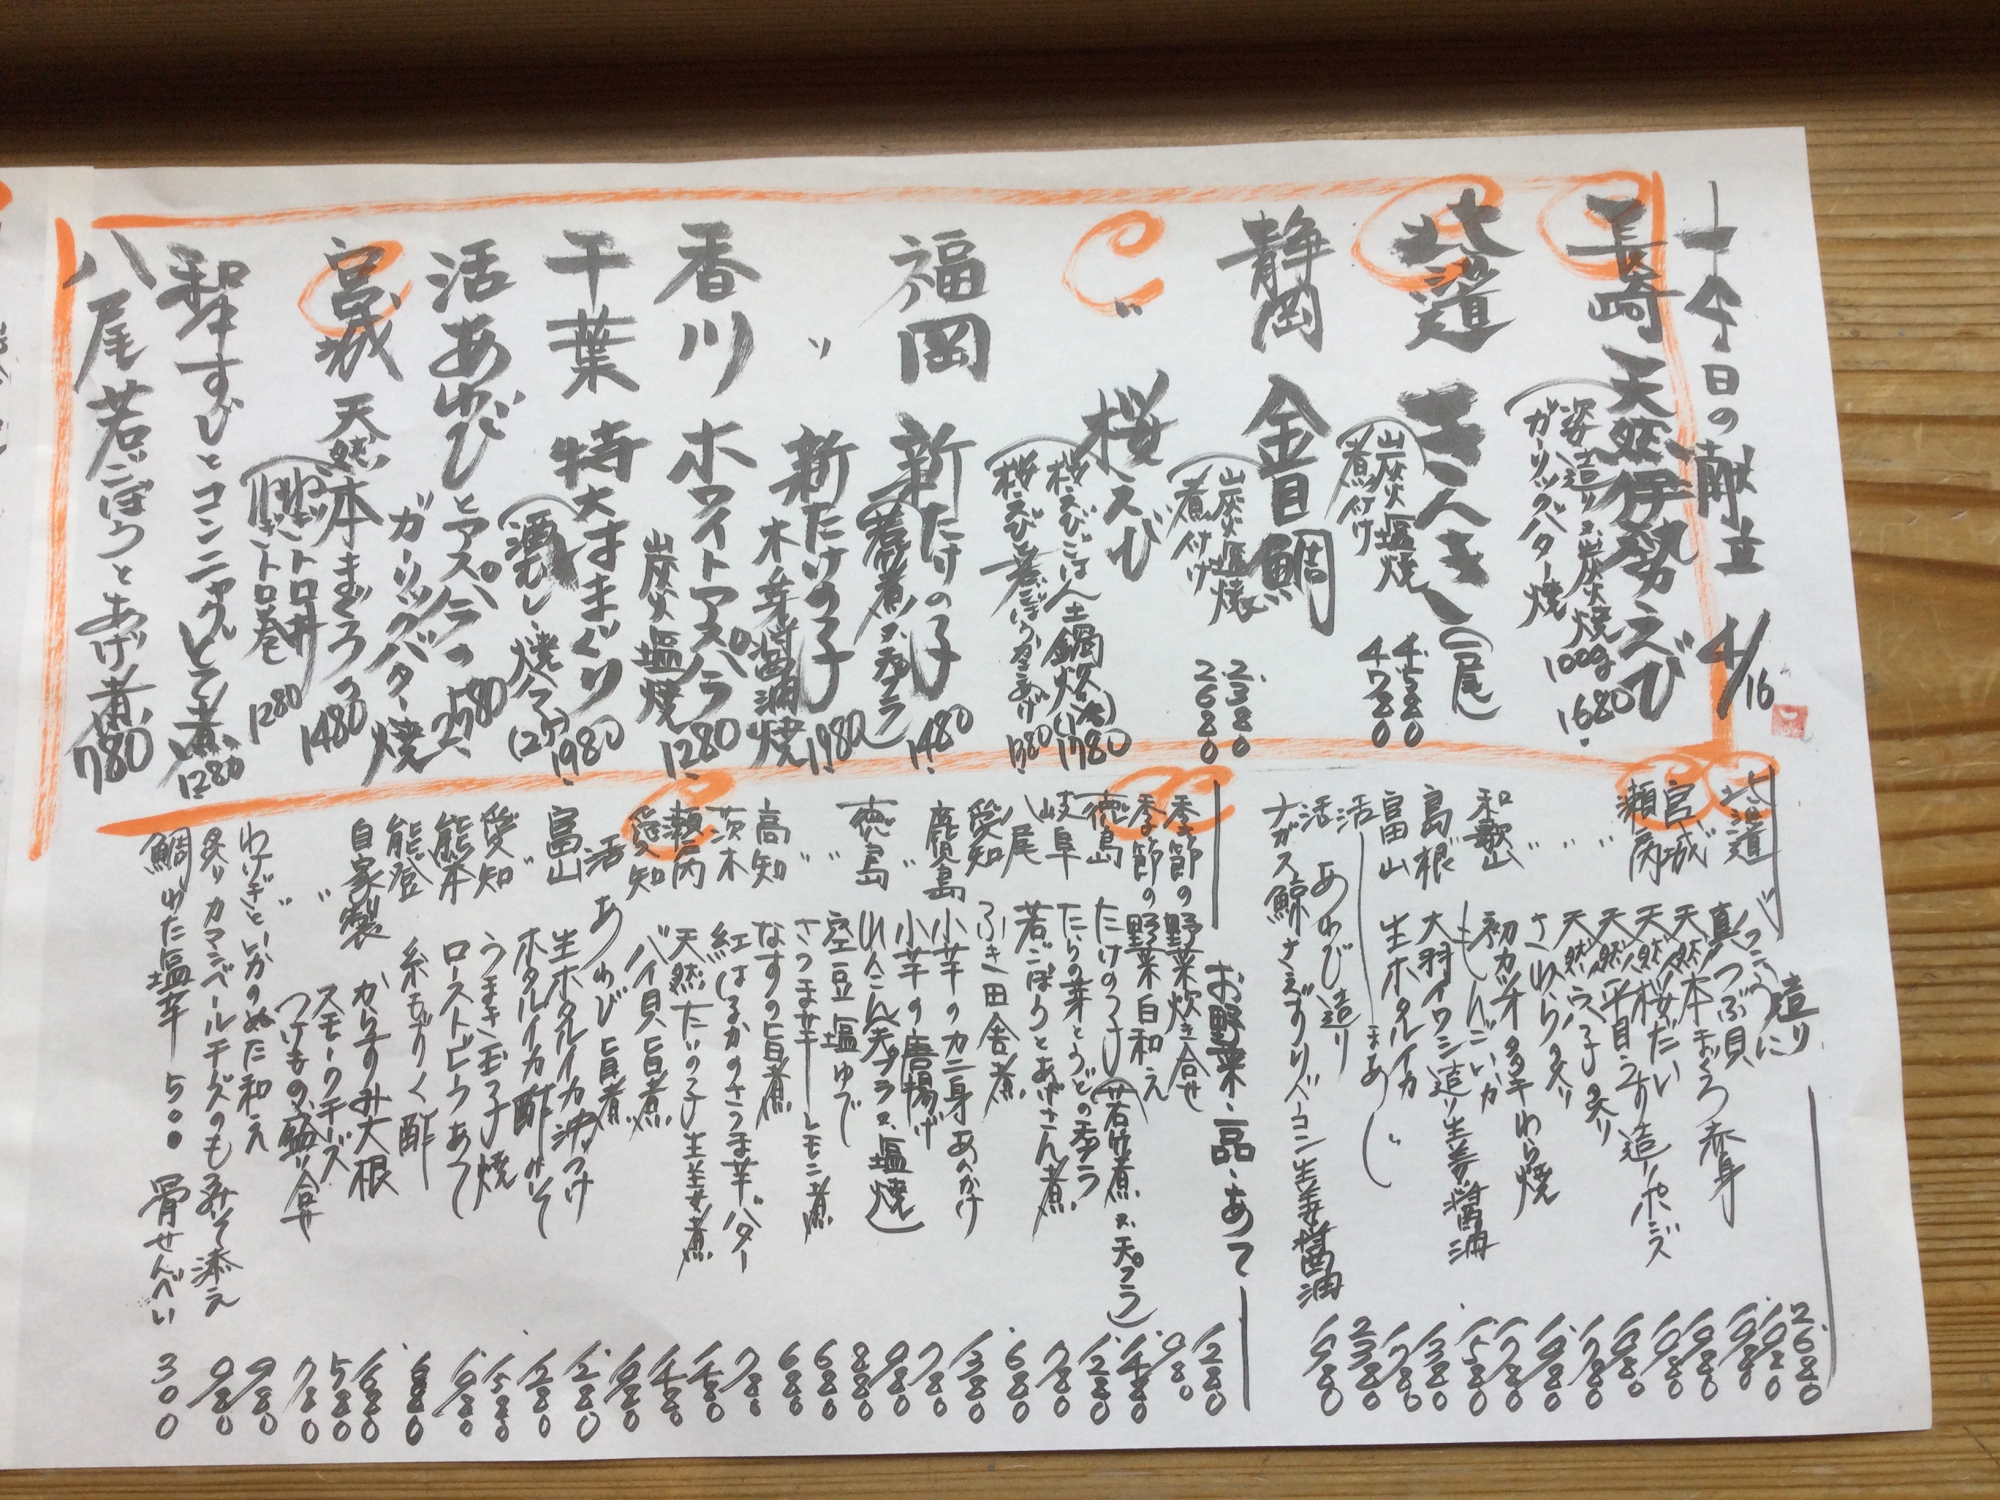 今日の献立 4/16
長崎 天然伊勢えび
姿造り又炭火焼 100g 1680
ガーリックバター焼
北海道 きんき(一尾)
炭火塩焼 4580
煮付け 4780
静岡 金目鯛
炭火塩焼 2380
煮付け 2680
〃 桜えび
桜えびごはん土鍋炊 1780
桜えびと若ごぼうかきあげ 1380
福岡 新たけの子 1480
(若煮又天プラ)
〃 新たけの子 1980
木ノ芽醤油焼
香川 ホワイトアスパラ 1280
炭火塩焼
千葉 特大はまぐり 1980
(酒むし、焼ハマ)
活あわびとアスパラの 2580
ガーリックバター焼
宮城 天然本まぐろの 1480
ねぎトロ丼
ねぎトロ巻 1280
和牛すじとコンニャクどて煮 1280
八尾若ごぼうとあげ煮 780
造り
北海道 2680
真つぶ貝 1980
宮城 天然本まぐろ赤身
瀬戸内 天然桜だい
〃 天然平目うす造りポンズ
〃 天然
〃 さわらタタキ
和歌山 初カツオタタキわら焼
もんごいか
島根 大羽イワシ造り生姜醤油
富山 生ホタルイカ
活 まあじ
活 あわび造り 2380
ナガス鯨さえずりベーコン生姜醤油
お野菜・一品・あて
季節の野菜炊き合せ 1280
季節の野菜白和え 980
徳島 たけのこ(若竹煮又天プラ) 1480
岐阜 たらの芽とうどの天プラ 1280
八尾 若ごぼうとあげさん煮 780
愛知 ふき田舎煮 680
鹿児島 小芋のカニ身あんかけ 1380
〃 小芋の唐揚げ 780
徳島 れんこん天プラ又塩焼 980
〃 空豆塩ゆで 880
〃 さつま芋レモン煮 680
高知 なすの旨煮 680
茨木 紅はるかのさつま芋バター 780
瀬戸内 天然たいの子生姜煮 1480
愛知 バイ貝旨煮 1480
活 あわび旨煮 1980
富山 生ホタルイカ沖づけ 1280
〃 ホタルイカ酢みそ 1280
愛知 うまき玉子焼
熊本 ローストビーフあて
能登 糸もずく酢 680
自家製 からすみ大根
〃 スモークチーズ 580
〃 つけもの盛り合せ 780
わけぎといかのぬた和え 980
炙りカマンベールチーズのもろみそ添え 980
鯛わた塩辛 500 骨せんべい 300